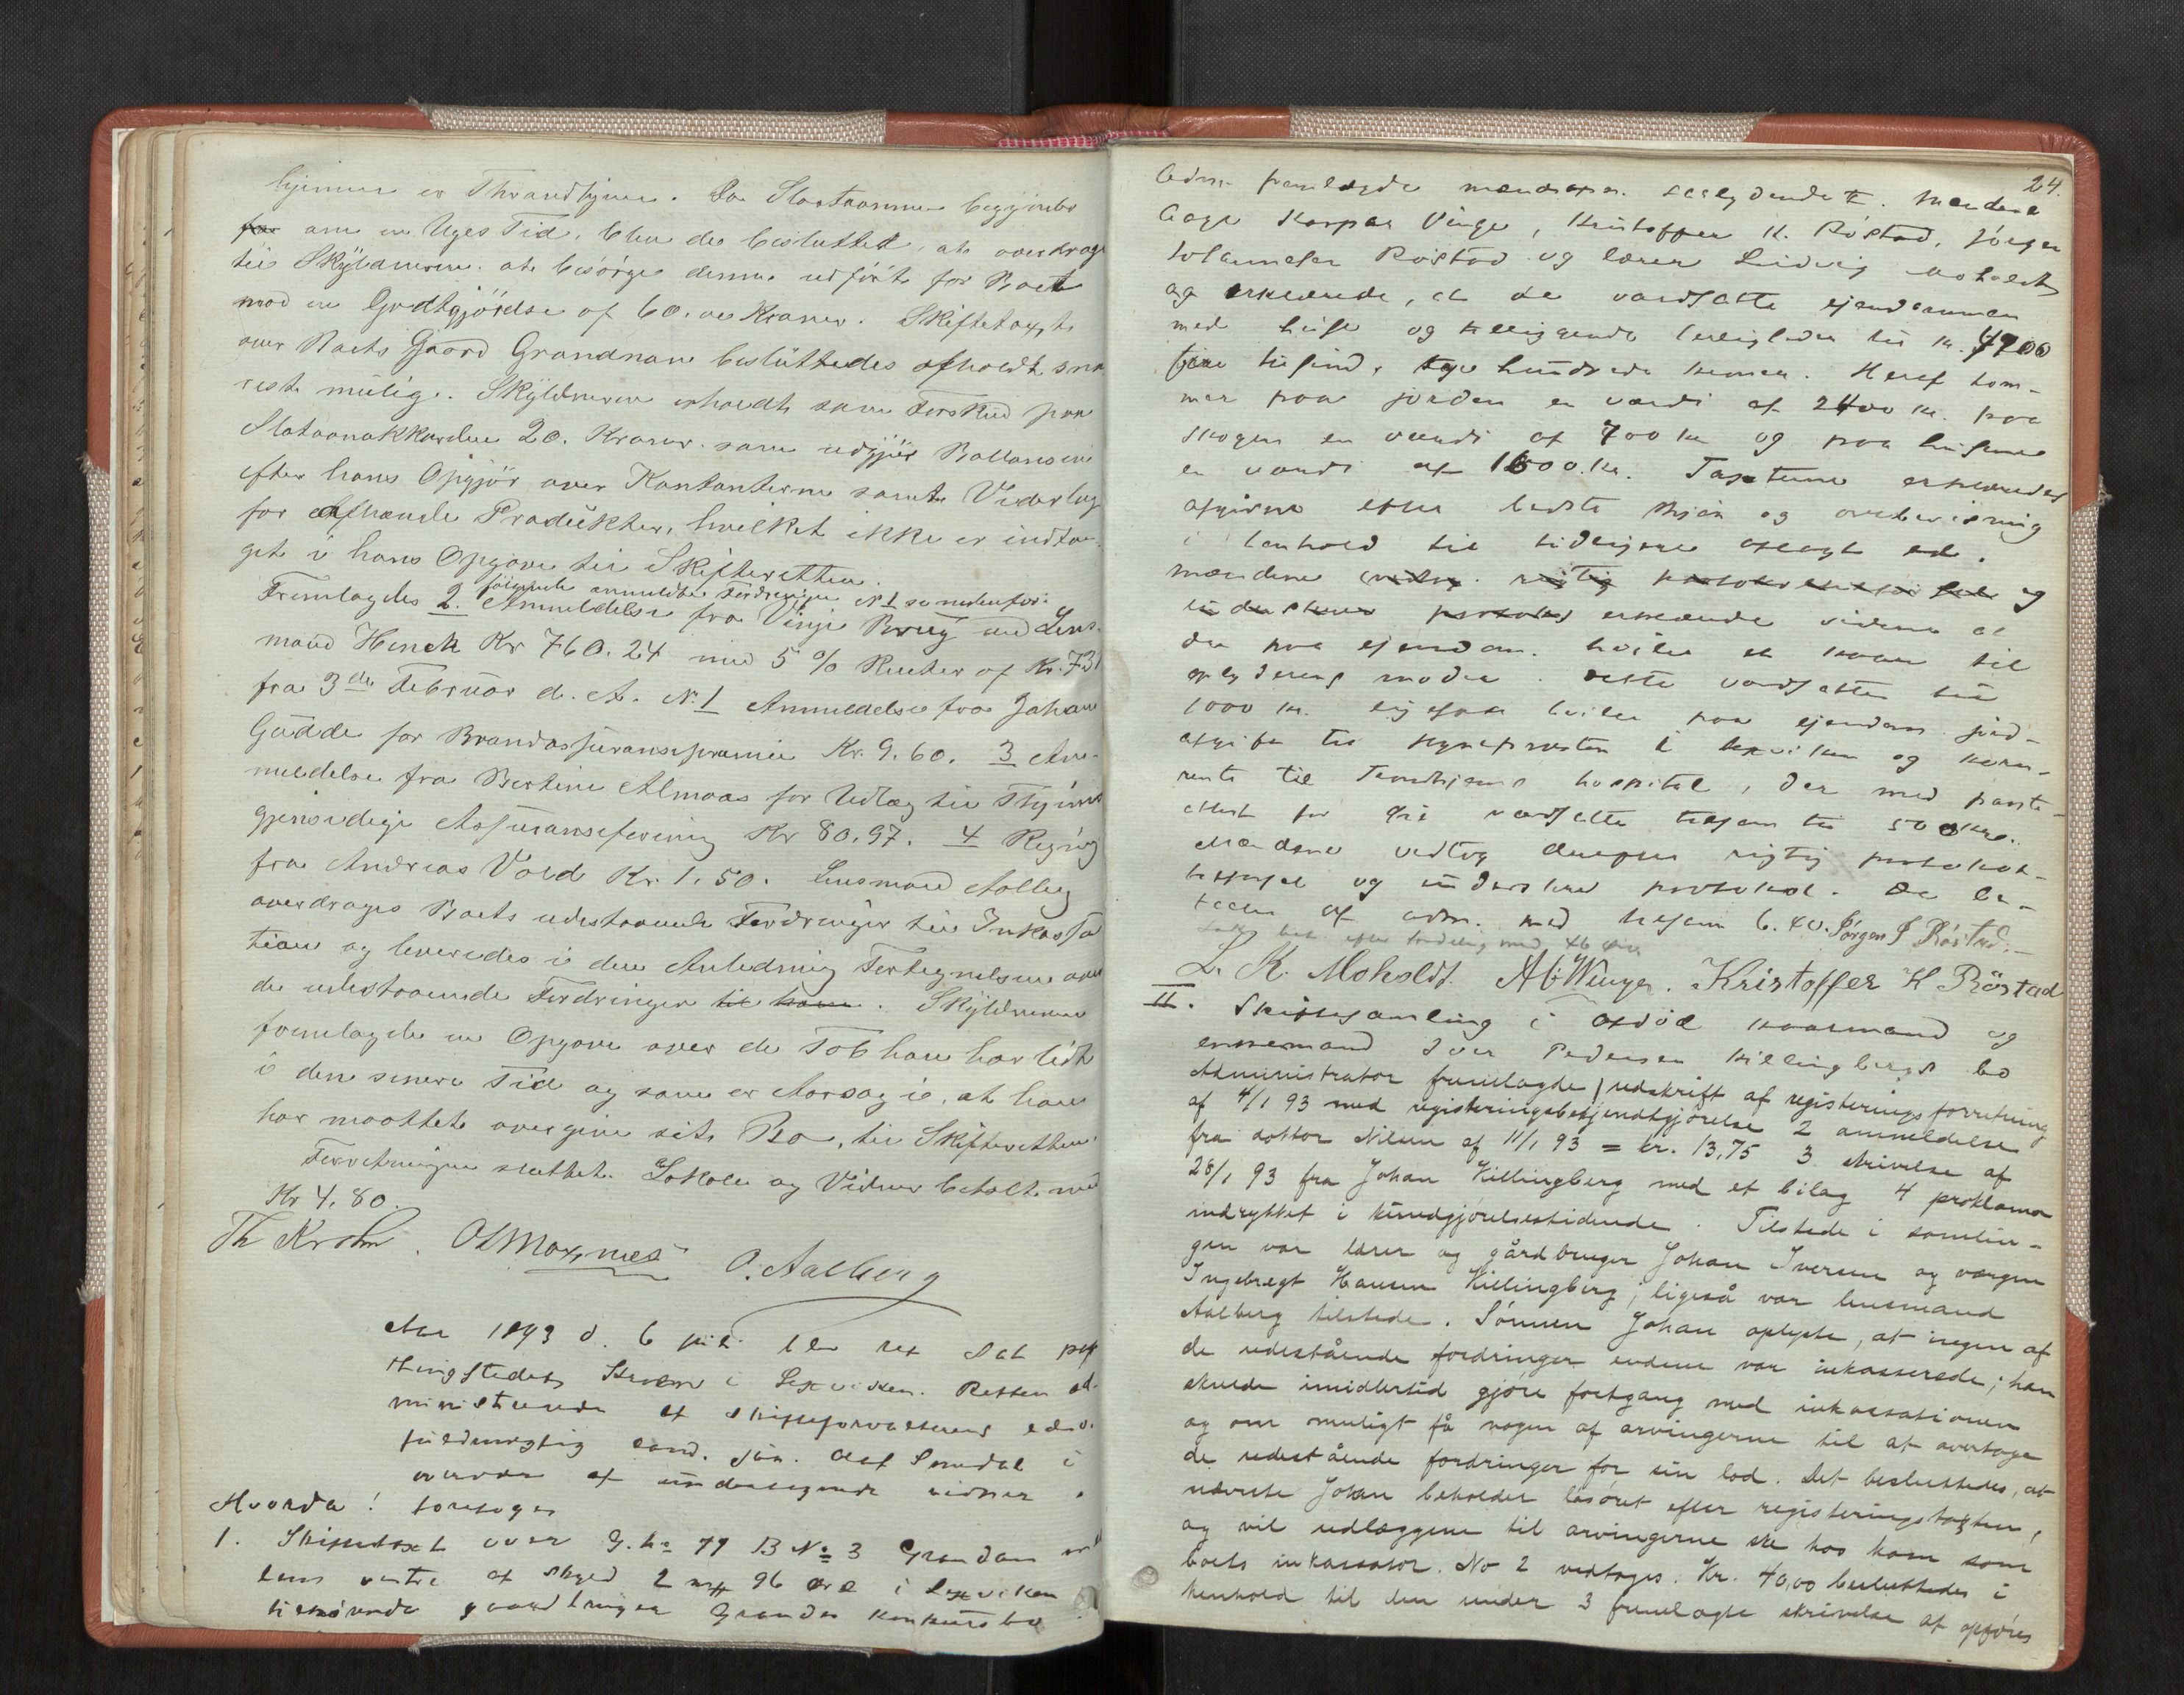 hjemme er Thrandhjem. Da Slaataannen begynder
om en Uges Tid, blev det besluttet, at overdrage
til Skyldneren at besørge denne udført for Boet
mod en Godtgjörelse af 60. Kroner. Skiftetaxt
over Boets Gaard Grandnan besluttedes afholdt sna
rest mulig. Skyldneren erholdt som Forskud paa
Slataanakkorden 20. Kroner som udgjør Ballansen
efter hans Opgjör over Kontanterne samt Vederlag
for afhændte Produkter, hvilket ikke er indta-
get i hans Opgave til Skifteretten.
Fremlagdes følgende anmeldte Fordringer N 1 se nedenfor
2. Anmeldelse fra Vinje Brug ved Lens-
mand Henck Kr 760.24 med 5 % Renter af Kr. 731
fra 3de Februar d. A. N. 1 Anmeldelse fra Johan
Gadde for Brandassurancepræmie Kr. 9.60. 3 An-
meldelse fra Bertine Almaas for Udlæg til Thjems
gjensidige Assuranceforening Kr 80.97. 4 Regning
fra Andreas Vold Kr. 1.50. Lensmand Aalberg
overdroges Boets udestaaende Fordringer til Inkassa
tion og leveredes i den Anledning Fortegnelsen over
de udestaaende Fordringer til ham. Skyldneren
fremlagde en Opgave over de Tab han har lidt
i den senere Tid og som er Aarsag i, at han
har maattet overgive sit Bo til Skifteretten.
Forretningen sluttet. Lokale og Vidner betalt med
Kr 4.80.
Th Krohn. O. Aalberg
Aar 1893 d. 6 juli blev ret sat paa
thingstedet i Lexviken. Retten ad-
ministreredes af skifteforvalterens edsv.
fuldmægtig cand. jur. i
overvær af undertegnede vidner.
Hvorda! foretoges
1. Skiftetaxt over G. No 77 B No 3 Grandan
vestre af skyld 2 mk 96 øre i Lexviken
tilhørende gaardbruger Grandes konkursbo
24.
Adm. fremlagde mændsopn. saalydende. Mændene
Aage Kaspar Vinge, Kristoffer H. Röstad, Jörgen
Johannesen Röstad og lærer Ludvig Moholdt
og erklærede, at de værdsatte ejendommen
med huse og tilliggende herligheder til kr. 4700
fire tusind, syv hundrede kroner. Heraf kom-
mer paa jorden en værdi af 2400 kr. paa
skogen en værdi af 700 kr og paa husene
en værdi af 1600 kr. Taxterne erklæredes
afgivne efter bedste skjøn og overbevisning
i henhold til tidligere aflagt ed.
Mændene og
erklærede videre at
der paa ejendom. hviler et kaar til
moder. Dette værdsattes til
1000 kr. Ligesaa hviler paa ejendom. jord-
afgift til sognepresten i Lexviken og korn-
rente til Trondhjems hospital, der med pante-
attest for øie værdsattes tilsam. til 500 kr.
Mændene vedtog derefter rigtig protokol-
tilførsel og underskrev protokol. De be-
taltes af adm. med tilsam 6.40. Jörgen J Röstad.
L. K. Moholdt. A C Winge. Kristoffer H Röstad
II. Skiftesamling i afdöd kaarmand og
enkemand Iver Pedersen Killingbergs bo
Administrator fremlagde 1 udskrift af registeringsforretning
af 4/1 93 med registeringsbekjendtgjörelse 2 anmeldelse
fra doktor Nilsen af 11/1 93 = kr. 13,75 3 skrivelse af
28/1 93 fra Johan Killingberg med et bilag 4 proklama
indrykket i kundgjörelsestidende. Tilstede i samlin-
gen var lærer og gårdbruger Johan Iversen og værgen
Ingebregt Hansen Killingberg; ligeså var lensmand
Aalberg tilstede. Sönnen Johan oplyste, at ingen af
de udestående fordringer endnu var inkasserede; han
skulde imidlertid gjöre fortgang med inkassationen
og om muligt få nogen af arvingerne til at overtage
de udestående fordringer for sin lod. Det besluttedes, at
nævnte Johan beholder lösöret efter registeringstaxten,
og vil udlæggene til arvingerne ske hos ham som
boets inkassator. No 2 vedtoges. Kr. 40,00 besluttedes i
henhold til den under 3 fremlagte skrivelse at opföres